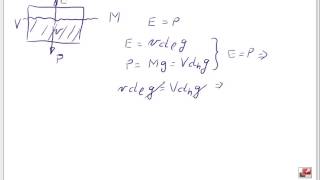 E
V M
v
P
E = P
E = v d_e g
P = Mg = V d_h g } E = P ⇒
v d_e g = V d_h g ⇒